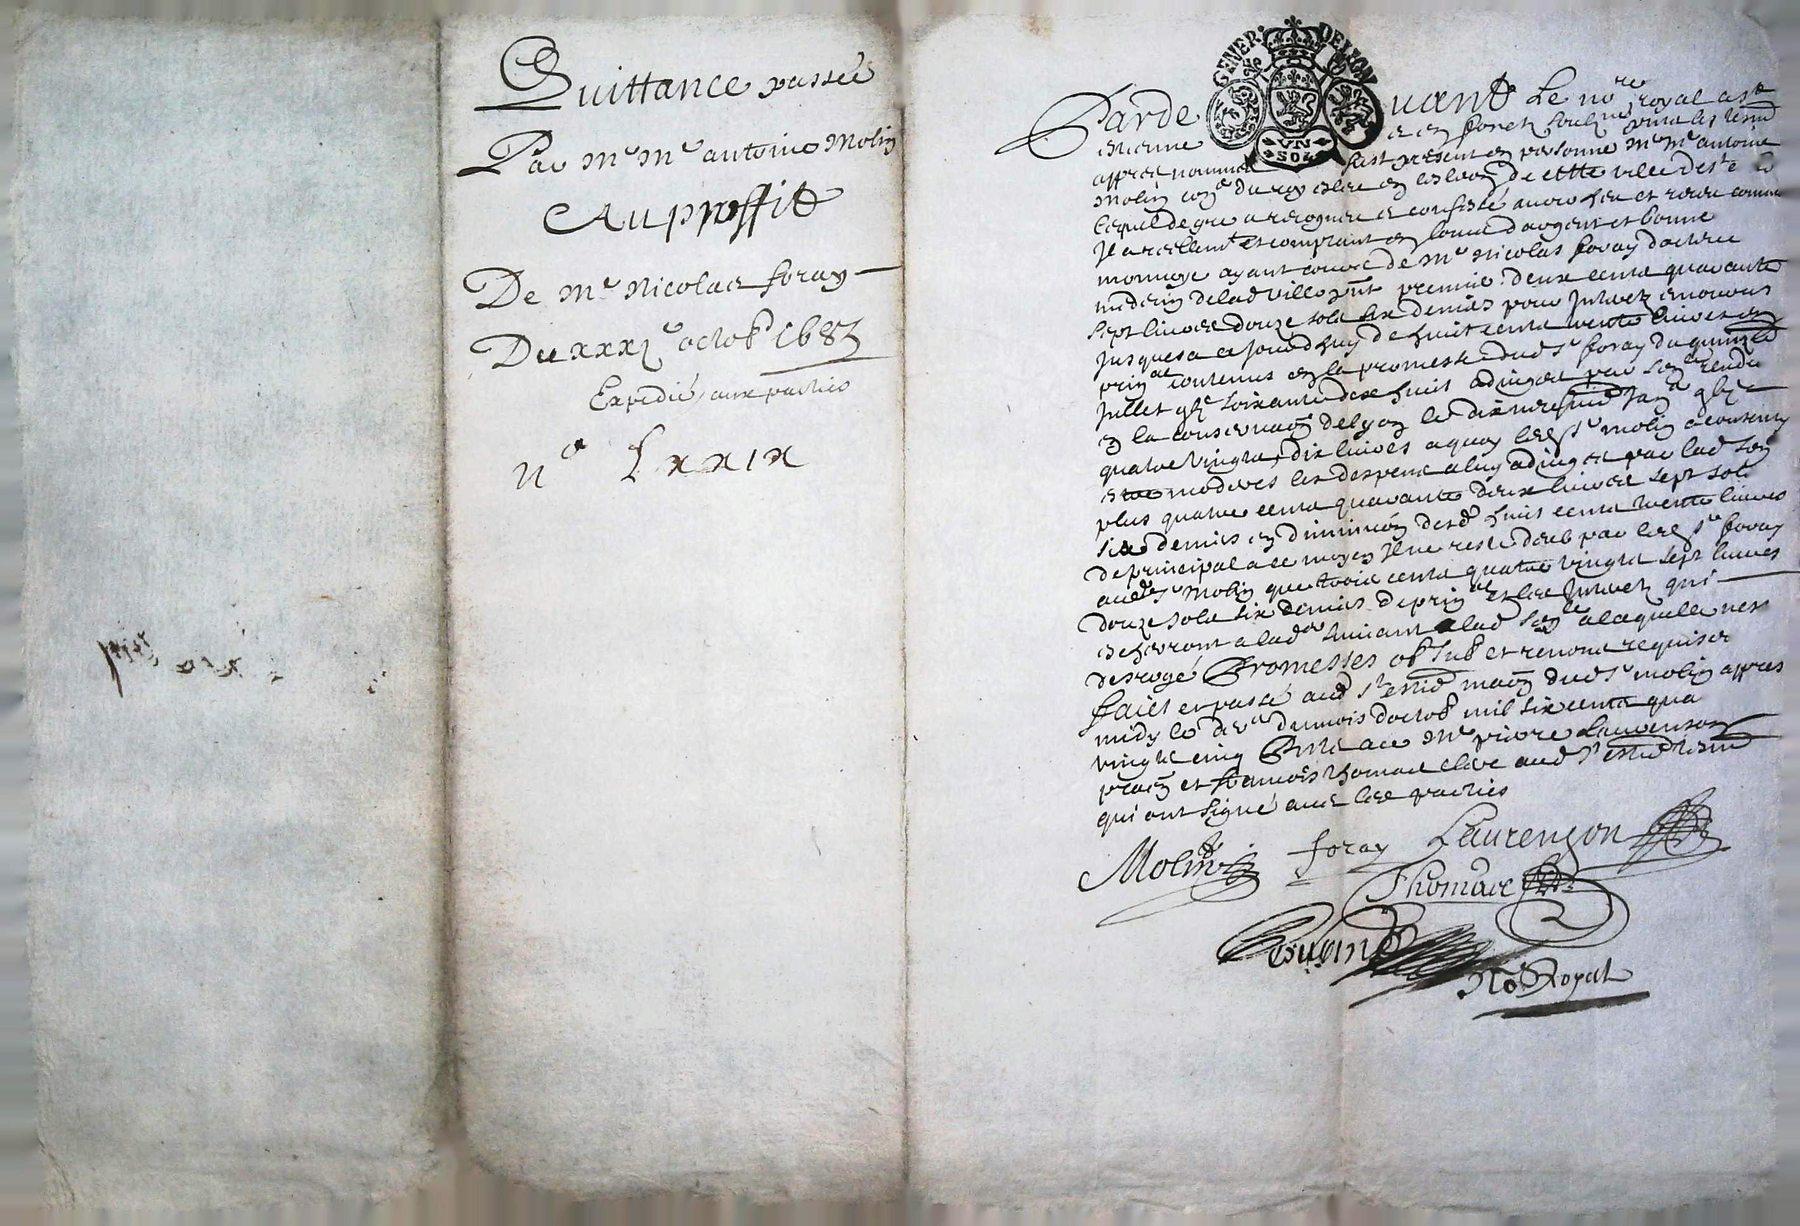 Quittance passée
Par Mr Me antoine Molin
Au proffit
De Mr Nicolas foray
Du xxxje octobe 1685
Expedié aux parties
n° Lxxix
GENER. DE LYON
VN
SOL
Pardevant le nore royal a St
estienne et en forest soubne
appres nommés fust present en personne Mr Me antoine
Molin du roy esleu en de cette ville de St e
lequel de gré a recogneu et confessé avoir heu et receu comme
Il a reellemt et comptant en louis d'argent et bonne
monnoye ayant cours de Mr Nicolas foray docteur
medecin de lad ville pnt deux cents quarante
sept livres douze sols six deniers pour
jusques a ce jourd'huy de huict cents trente livres en
prinal contenus en la promesse dud sr foray du quinze
Juillet soixante dix huict adjugés par rendue
en la conservaon de Lyon le
quatre vingts dix livres a quoy led sr Molin a
moderés les despens a luy adjugés par lad
plus quatre cents quarante deux livres sept sols
six deniers en diminuon desd huict cents trente livres
de principal a ce moyen Il ne reste deub par led sr foray
aud sr Molin que trois cents quatre vingts sept livres
douze sols six deniers de prinal et les qui
suivant lad a laquelle n'est
desrogé Promesses ob sub et renone requises
faict et passé aud St estne maon dud sr molin appres
midy le du mois d'octob mil six cents qua
vingts cinq Me pierre Laurenson
et francois thomas clerc aud St estne
qui ont signé avec les parties
Molin
foray
Laurenson
Thomas
No Royal